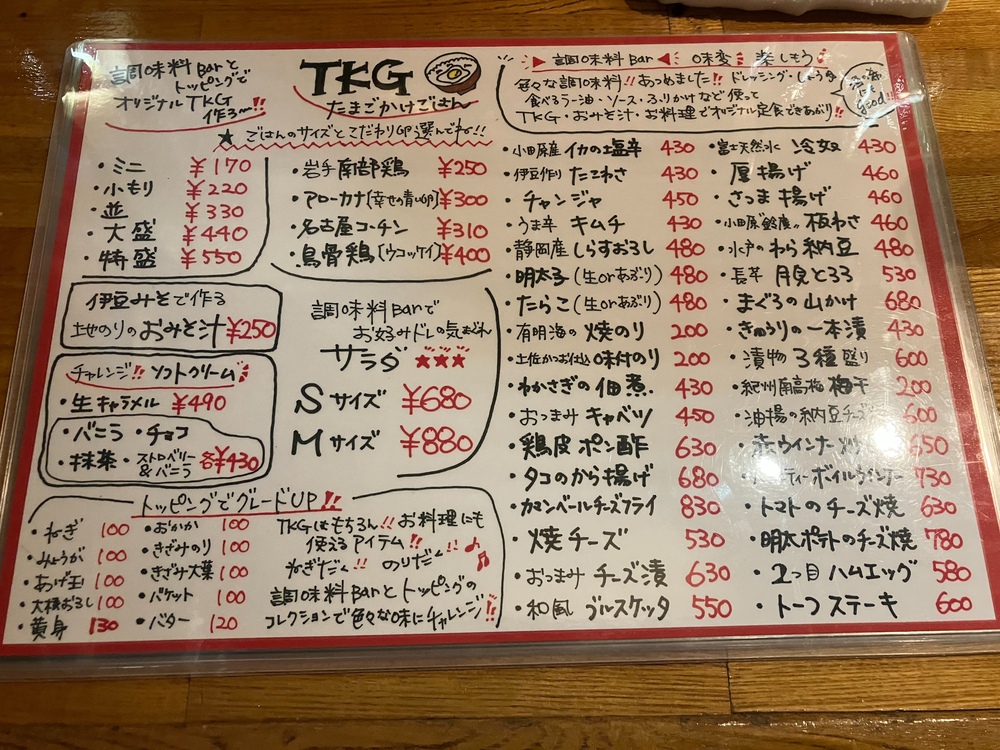 調味料Barと
トッピングで
オリジナルTKG
作ろ〜!!
TKG
たまごかけごはん
★ごはんのサイズとこだわり卵選んでね!!
▶調味料Bar◀ 味変 楽しもう
色々な調味料!!あつめました!! ドレッシング・しょうゆ
食べるラー油・ソース・ふりかけなど使って
TKG・おみそ汁・お料理でオリジナル定食できあがり!!
good!!
・ミニ ¥170
・小もり ¥220
・並 ¥330
・大盛 ¥440
・特盛 ¥550
・岩手南部鶏 ¥250
・アローカナ(幸せの青い卵) ¥300
・名古屋コーチン ¥310
・烏骨鶏(ウコッケイ) ¥400
伊豆みそで作る
土地のりのおみそ汁¥250
チャレンジ!!ソフトクリーム
・生キャラメル ¥490
・バニラ ・チョコ
・抹茶・ストロベリー&バニラ 各¥430
調味料Barで
お好みドレの気まぐれ
サラダ★★★
Sサイズ ¥680
Mサイズ ¥880
トッピングでグレードUP!!
・ねぎ 100
・みょうが 100
・あげ玉 100
・大根おろし 100
・黄身 130
・おかか 100
・きざみのり 100
・きざみ大葉 100
・バケット 100
・バター 120
TKGはもちろん!!お料理にも
使えるアイテム!!
ねぎだく!! のりだく!!
調味料Barとトッピングの
コレクションで色々な味にチャレンジ!!
・小田原産イカの塩辛 430
・伊豆作りたこわさ 430
・チャンジャ 450
・うま辛 キムチ 430
・静岡産しらすおろし 480
・明太子(生orあぶり) 480
・たらこ(生orあぶり) 480
・有明海の焼のり 200
・土佐かつお仕込味付のり 200
・わかさぎの佃煮 430
・おつまみ キャベツ 450
・鶏皮ポン酢 630
・タコのから揚げ 680
・カマンベールチーズフライ 830
・焼チーズ 530
・おつまみチーズ漬 630
・和風ブルスケッタ 550
・富士天然水 冷奴 430
・厚揚げ 460
・さつま揚げ 460
・小田原"鈴廣"板わさ 460
・水戸のわら納豆 480
・長芋 月見とろろ 530
・まぐろの山かけ 680
・きゅうりの一本漬 430
・漬物3種盛り 600
・紀州南高梅 梅干 200
・油揚の納豆チーズ 600
・赤ウインナー 650
ボイルウインナー 730
・トマトのチーズ焼 630
・明太ポテトのチーズ焼 780
・2つ目ハムエッグ 580
・トーフステーキ 600